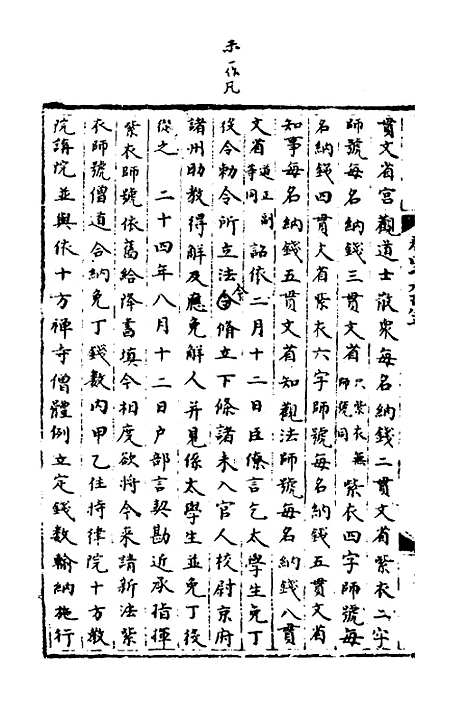 未一作凡
貫文省宮觀道士散衆每名納錢二貫文省紫衣二字
師號每名納錢三貫文省只紫衣無師號同紫衣四字師號每
名納錢四貫文省紫衣六字師號每名納錢五貫文省
知事每名納錢五貫文省知觀法師號每名納錢八貫
文省道正副等同詔依二月十二日臣僚言乞太學生免丁
役令勅令所立法令脩立下條諸未入官人校尉京府
諸州助教得解及應免解人并見係太學生並免丁役
從之　二十四年八月十二日戶部言契勘近承指揮
紫衣師號依舊給降書填令相度欲將今來請新法紫
衣師號僧道合納免丁錢數內甲乙住持律院十方教
院講院並與依十方禪寺僧體例立定錢數輸納施行